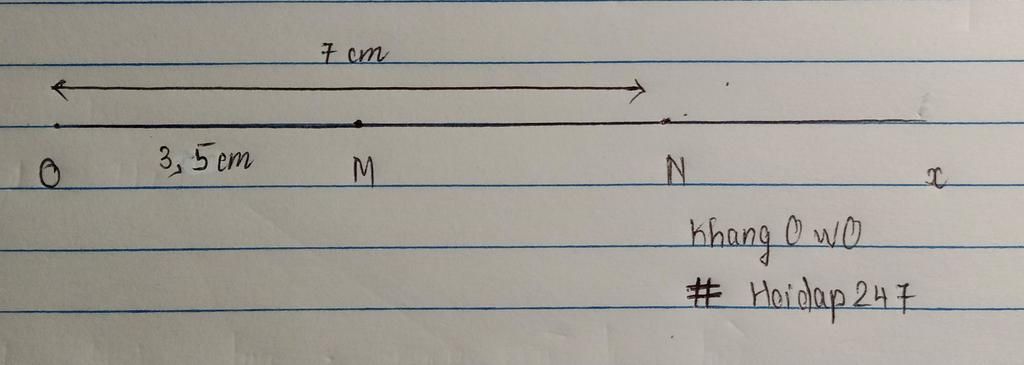 7 cm
3,5 cm
O M N x
Khang OwO
# Hoidap247